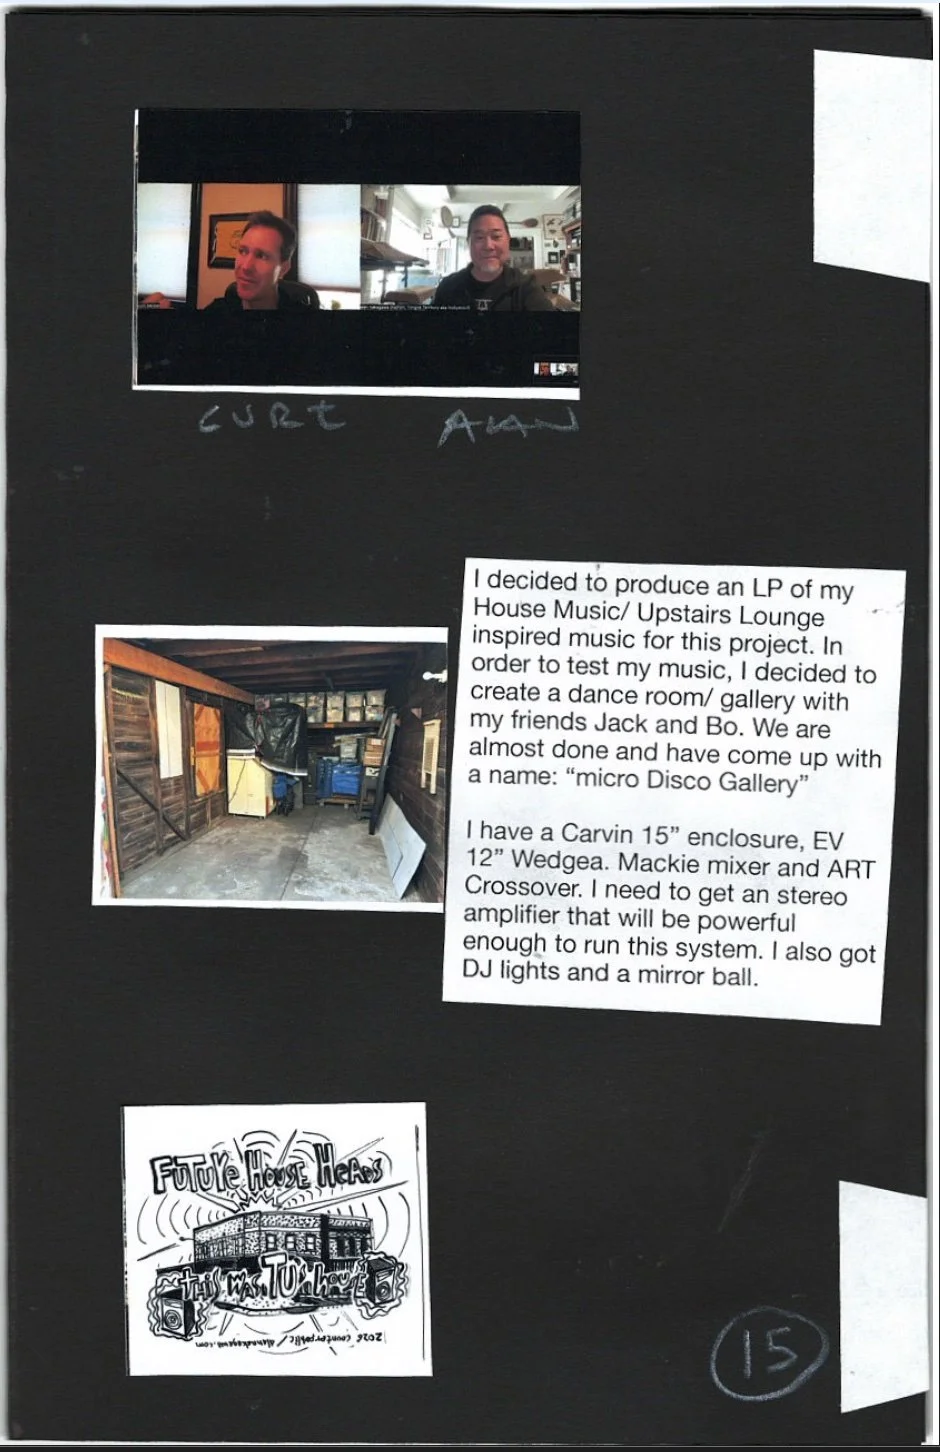 CURT ALAN
I decided to produce an LP of my
House Music/ Upstairs Lounge
inspired music for this project. In
order to test my music, I decided to
create a dance room/ gallery with
my friends Jack and Bo. We are
almost done and have come up with
a name: “micro Disco Gallery”
I have a Carvin 15” enclosure, EV
12” Wedgea. Mackie mixer and ART
Crossover. I need to get an stereo
amplifier that will be powerful
enough to run this system. I also got
DJ lights and a mirror ball.
FuTuYe House HeaDS
THiS WAS TU house
2026 counterpublic / alannakagawa.com
15